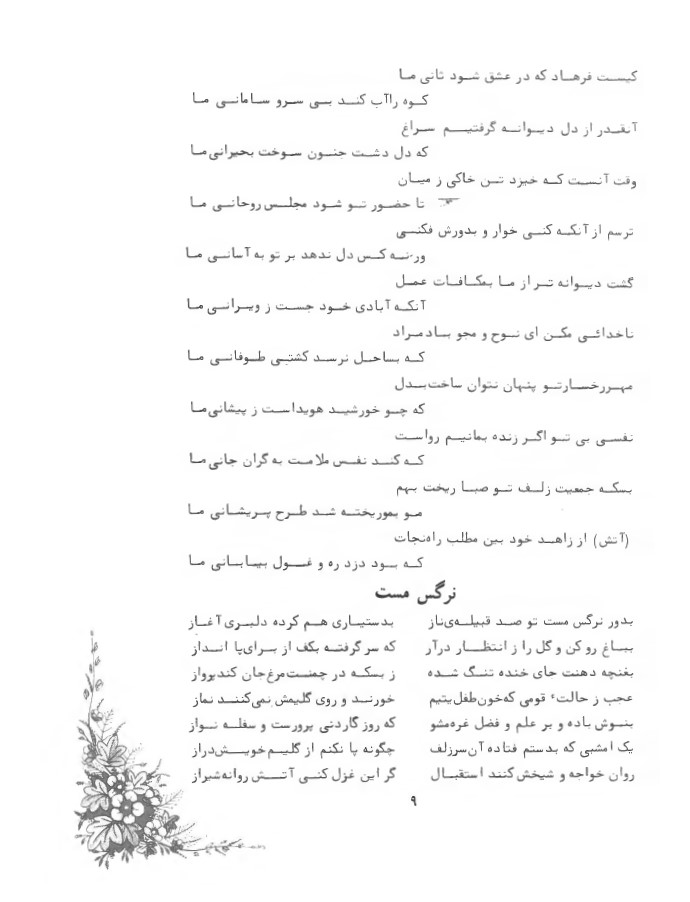 کیست فرهاد که در عشق شود ثانی ما
کوه راآب کند بی سرو سامانی ما
آنقدر از دل دیوانه گرفتیم سراغ
که دل دشت جنون سوخت بحیرانی‌ما
وقت آنست که خیزد تن خاکی ز میان
تا حضور تو شود مجلس روحانی ما
ترسم از آنکه کنی خوار و بدورش فکنی
ورنه کس دل ندهد بر تو به آسانی ما
گشت دیوانه تر از ما بمکافات عمل
آنکه آبادی خود جست ز ویرانی ما
ناخدائی مکن ای نوح و مجو بادمراد
که بساحل نرسد کشتی طوفانی ما
مهررخسارتو پنهان نتوان ساخت‌بدل
که چو خورشید هویداست ز پیشانی‌ما
نفسی بی تو اگر زنده بمانیم رواست
که کند نفس ملامت به گران جانی ما
بسکه جمعیت زلف تو صبا ریخت بهم
مو بموریخته شد طرح پریشانی ما
(آتش) از زاهد خود بین مطلب راه‌نجات
که بود دزد ره و غول بیابانی ما
نرگس مست
بدور نرگس مست تو صد قبیله‌ی‌ناز بدستیاری هم کرده دلبری آغاز
بباغ رو کن و گل را ز انتظار درآر که سر گرفته بکف از برای‌پا انداز
بغنچه دهنت جای خنده تنگ شده ز بسکه در چمنت‌مرغ‌جان کندپرواز
عجب ز حالت‌ء قومی که‌خون‌طفل‌یتیم خورند و روی گلیمش نمی‌کنند نماز
بنوش باده و بر علم و فضل غره‌مشو که روز گاردنی پرورست و سفله نواز
یک امشبی که بدستم فتاده آن‌سرزلف چگونه پا نکنم از گلیم‌خویش‌دراز
روان خواجه و شیخش کنند استقبال گر این غزل کنی آتش روانه‌شیراز
۹